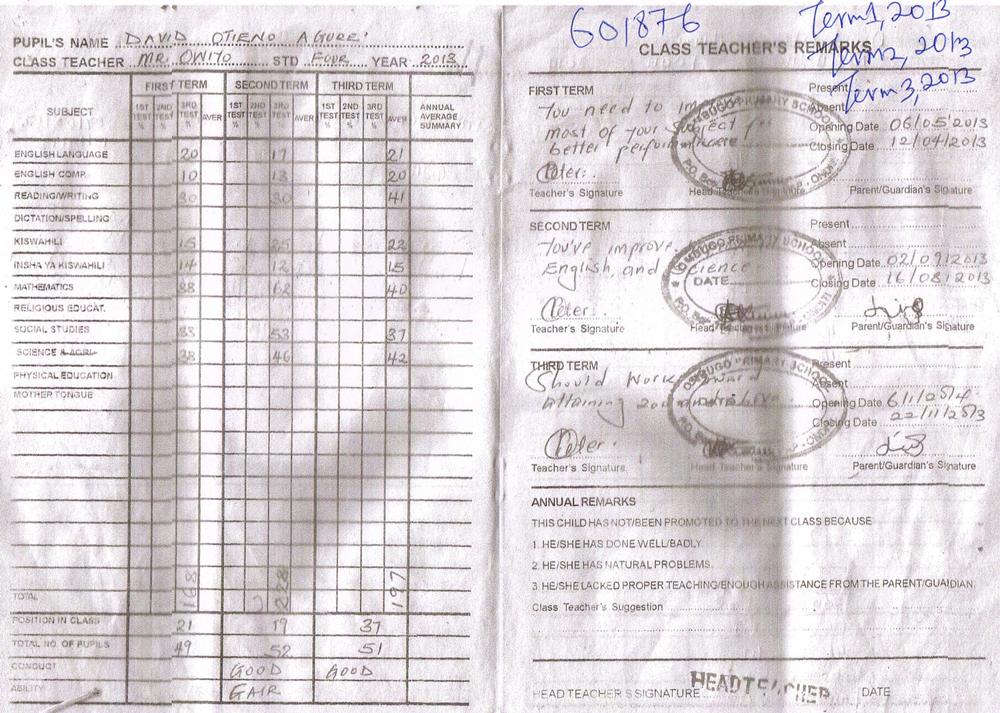 PUPIL'S NAME DAVID OTIENO AGURE
CLASS TEACHER MR. OWITO STD FOUR YEAR 2013
SUBJECT FIRST TERM SECOND TERM THIRD TERM ANNUAL AVERAGE SUMMARY
1ST TEST % 2ND TEST % 3RD TEST % AVER 1ST TEST % 2ND TEST % 3RD TEST % AVER 1ST TEST % 2ND TEST % 3RD TEST % AVER
ENGLISH LANGUAGE 20 17 21
ENGLISH COMP. 10 13 20
READING/WRITING 30 30 41
DICTATION/SPELLING
KISWAHILI 15 25 22
INSHA YA KISWAHILI 14 12 15
MATHEMATICS 38 62 40
RELIGIOUS EDUCAT.
SOCIAL STUDIES 33 53 37
SCIENCE & AGRI. 38 46 42
PHYSICAL EDUCATION
MOTHER TONGUE
TOTAL 168 228 197
POSITION IN CLASS 21 19 37
TOTAL NO. OF PUPILS 49 52 51
CONDUCT GOOD GOOD
ABILITY FAIR
601876
Term 1, 2013
Term 2, 2013
Term 3, 2013
CLASS TEACHER'S REMARKS
FIRST TERM Present
You need to Absent
most of your subject for Opening Date 06/05/2013
better performance Closing Date 12/04/2013
Peter
Teacher's Signature Head Teacher's Signature Parent/Guardian's Signature
SECOND TERM Present
You've improve Absent
English, and Science Opening Date 02/09/2013
DATE Closing Date 16/08/2013
Peter
Teacher's Signature Head Teacher's Signature Parent/Guardian's Signature
THIRD TERM Present
Should work toward Absent
attaining Opening Date 6/1/2014
Closing Date 22/11/2013
Peter
Teacher's Signature Head Teacher's Signature Parent/Guardian's Signature
ANNUAL REMARKS
THIS CHILD HAS NOT/BEEN PROMOTED TO THE NEXT CLASS BECAUSE
1. HE/SHE HAS DONE WELL/BADLY.
2. HE/SHE HAS NATURAL PROBLEMS.
3 HE/SHE LACKED PROPER TEACHING/ENOUGH ASSISTANCE FROM THE PARENT/GUAIDIAN.
Class Teacher's Suggestion
HEAD TEACHER S SIGNATURE HEADTEACHER DATE